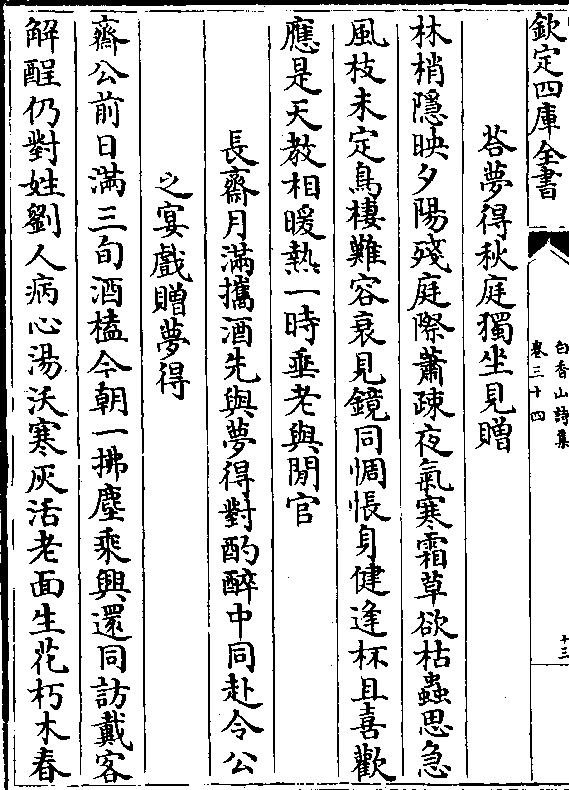 欽定四庫全書
白香山詩集
卷三十四
十三
荅夢得秋庭獨坐見贈
林梢隱映夕陽殘庭際蕭疎夜氣寒霜草欲枯蟲思急
風枝未定鳥棲難容衰見鏡同惆悵身健逢杯且喜歡
應是天教相暖熱一時垂老與閒官
長齋月滿攜酒先與夢得對酌醉中同赴令公
之宴戲贈夢得
齋公前日滿三旬酒榼今朝一拂塵乘興還同訪戴客
解酲仍對姓劉人病心湯沃寒灰活老面生花朽木春